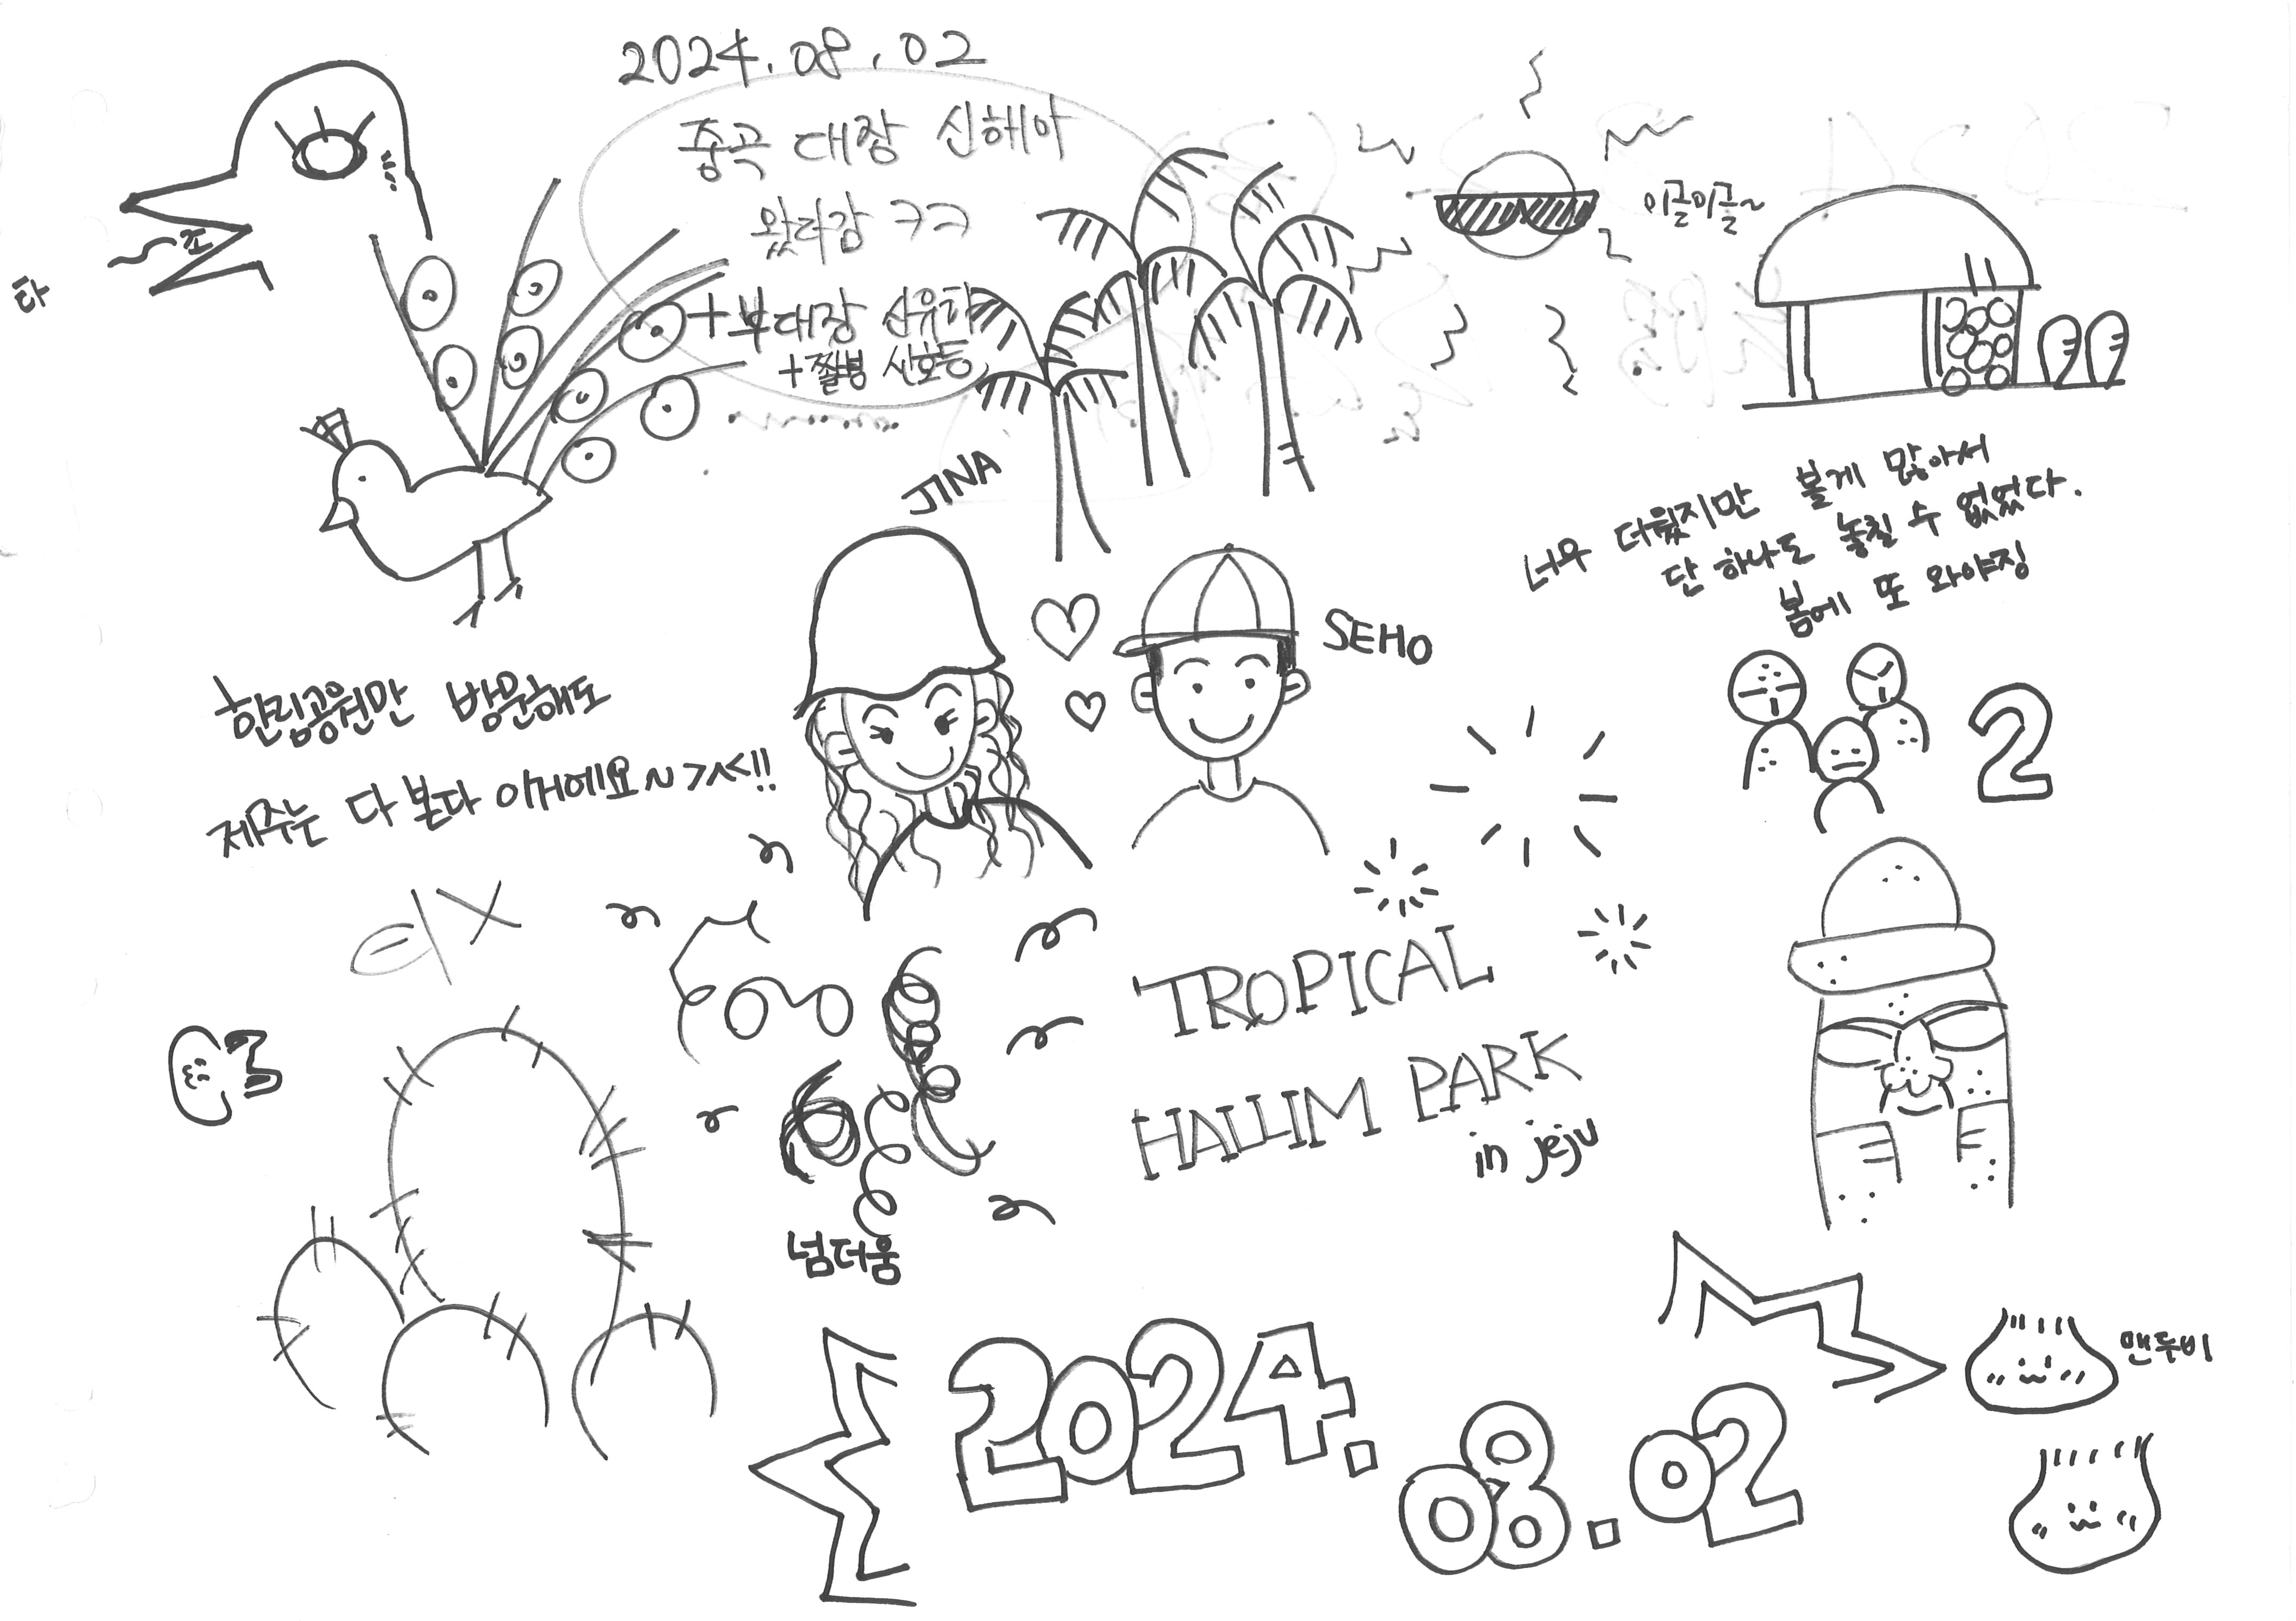 2024.08.02
중곡 대장 신해아
왔다감 ㅋㅋ
+부대장 신유하
+쫄병 신호등
이글이글~
타
조
JINA
SEHO
너무 더웠지만 볼게 많아서
단 하나도 놓칠 수 없었다.
봄에 또 와야징
한림공원만 방문해도
제주는 다 본다 이거에요~>^<!!
2
TROPICAL
HALLIM PARK
in jeju
넘더움
2024.
08.02
맨두비